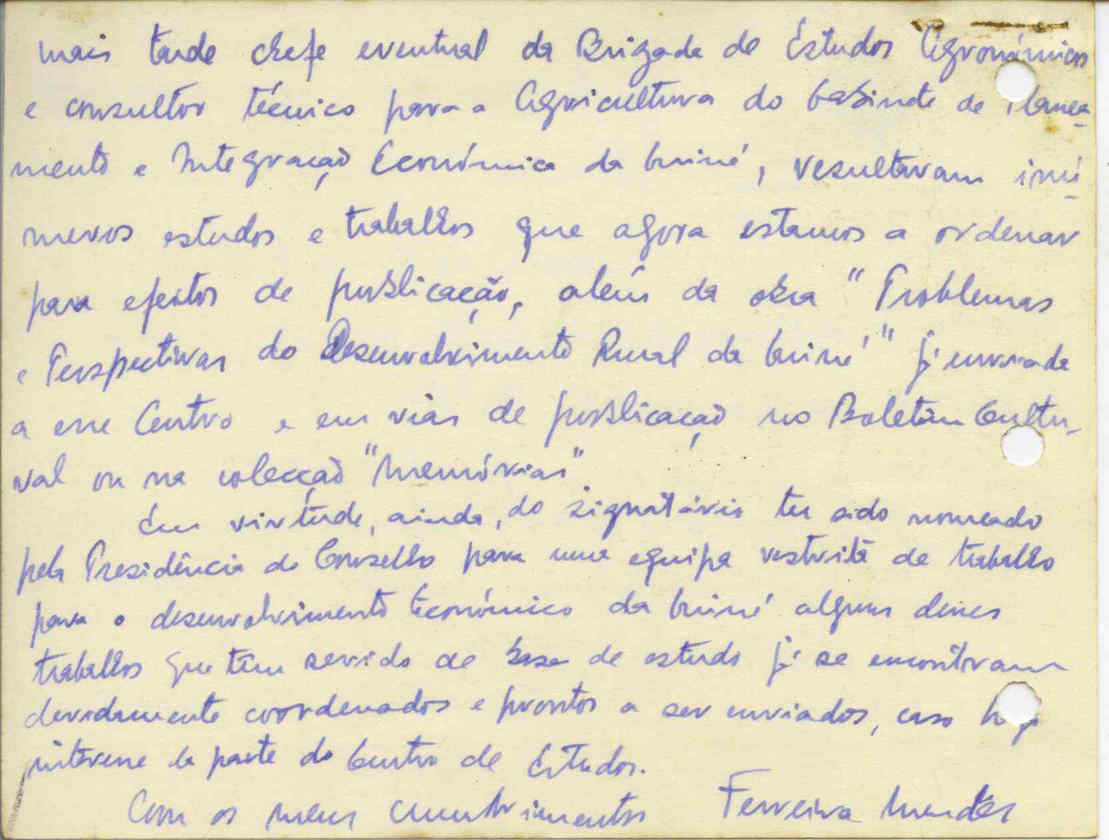 mais tarde chefe eventual da Brigada de Estudos Agronómicos
e consultor técnico para a Agricultura do Gabinete de Planea-
mento e Integração Económica da Guiné, resultaram inú-
meros estudos e trabalhos que agora estamos a ordenar
para efeitos de publicação, além da obra "Problemas
e Perspectivas do Desenvolvimento Rural da Guiné" já enviada
a esse Centro e em vias de publicação no Boletim Cultu-
ral ou na colecção "Memórias"
Em virtude, ainda, do signatário ter sido nomeado
pela Presidência do Conselho para uma equipa restrita de trabalho
para o desenvolvimento económico da Guiné alguns desses
trabalhos que têm servido de base de estudo já se encontram
devidamente coordenados e prontos a ser enviados, caso haja
interesse da parte do Centro de Estudos.
Com os meus cumprimentos Ferreira Mendes